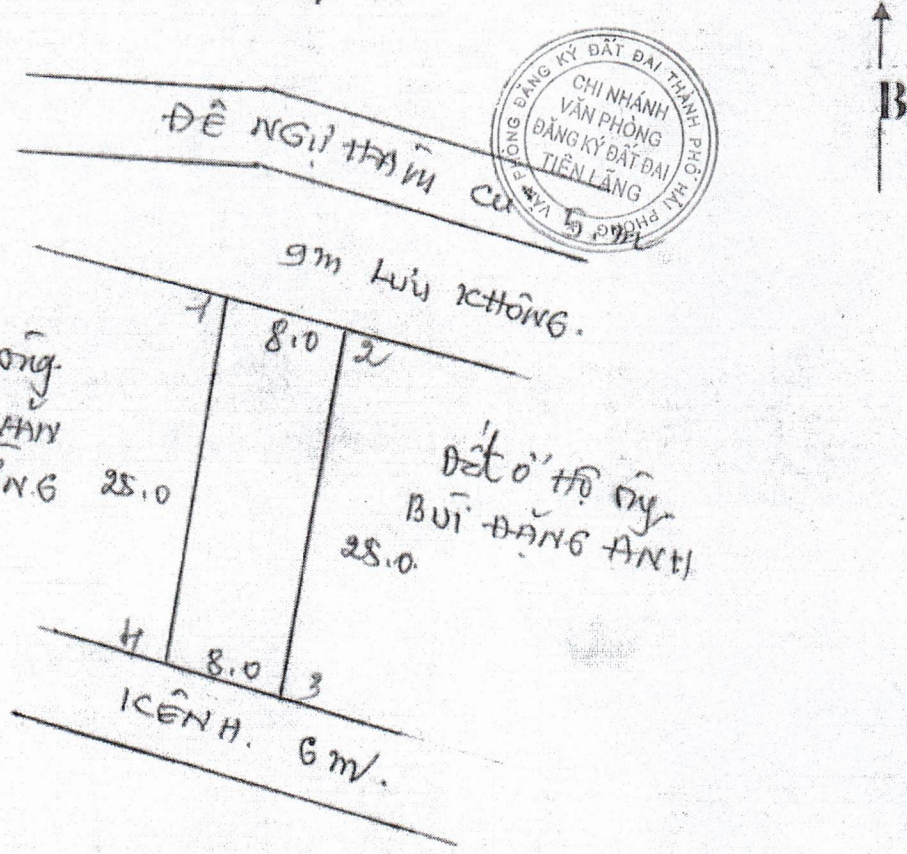 VĂN PHÒNG ĐĂNG KÝ ĐẤT ĐAI THÀNH PHỐ HẢI PHÒNG
CHI NHÁNH
VĂN PHÒNG
ĐĂNG KÝ ĐẤT ĐAI
TIÊN LÃNG
B
ĐÊ NGỰ HÀM CŨ 5m
9m LƯU KHÔNG.
1
8.0 2
ông
25.0
Đất ở hộ ông
BÙI ĐĂNG ANH
25.0.
4
8.0 3
KÊNH. 6m.